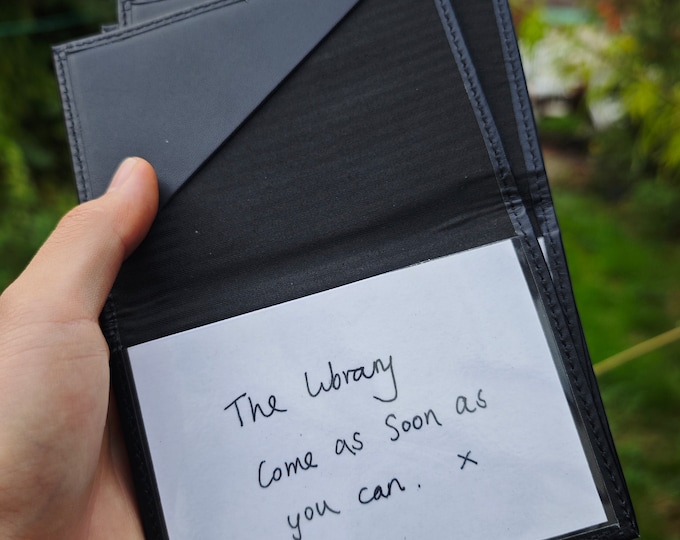 The library
Come as soon as
you can. x